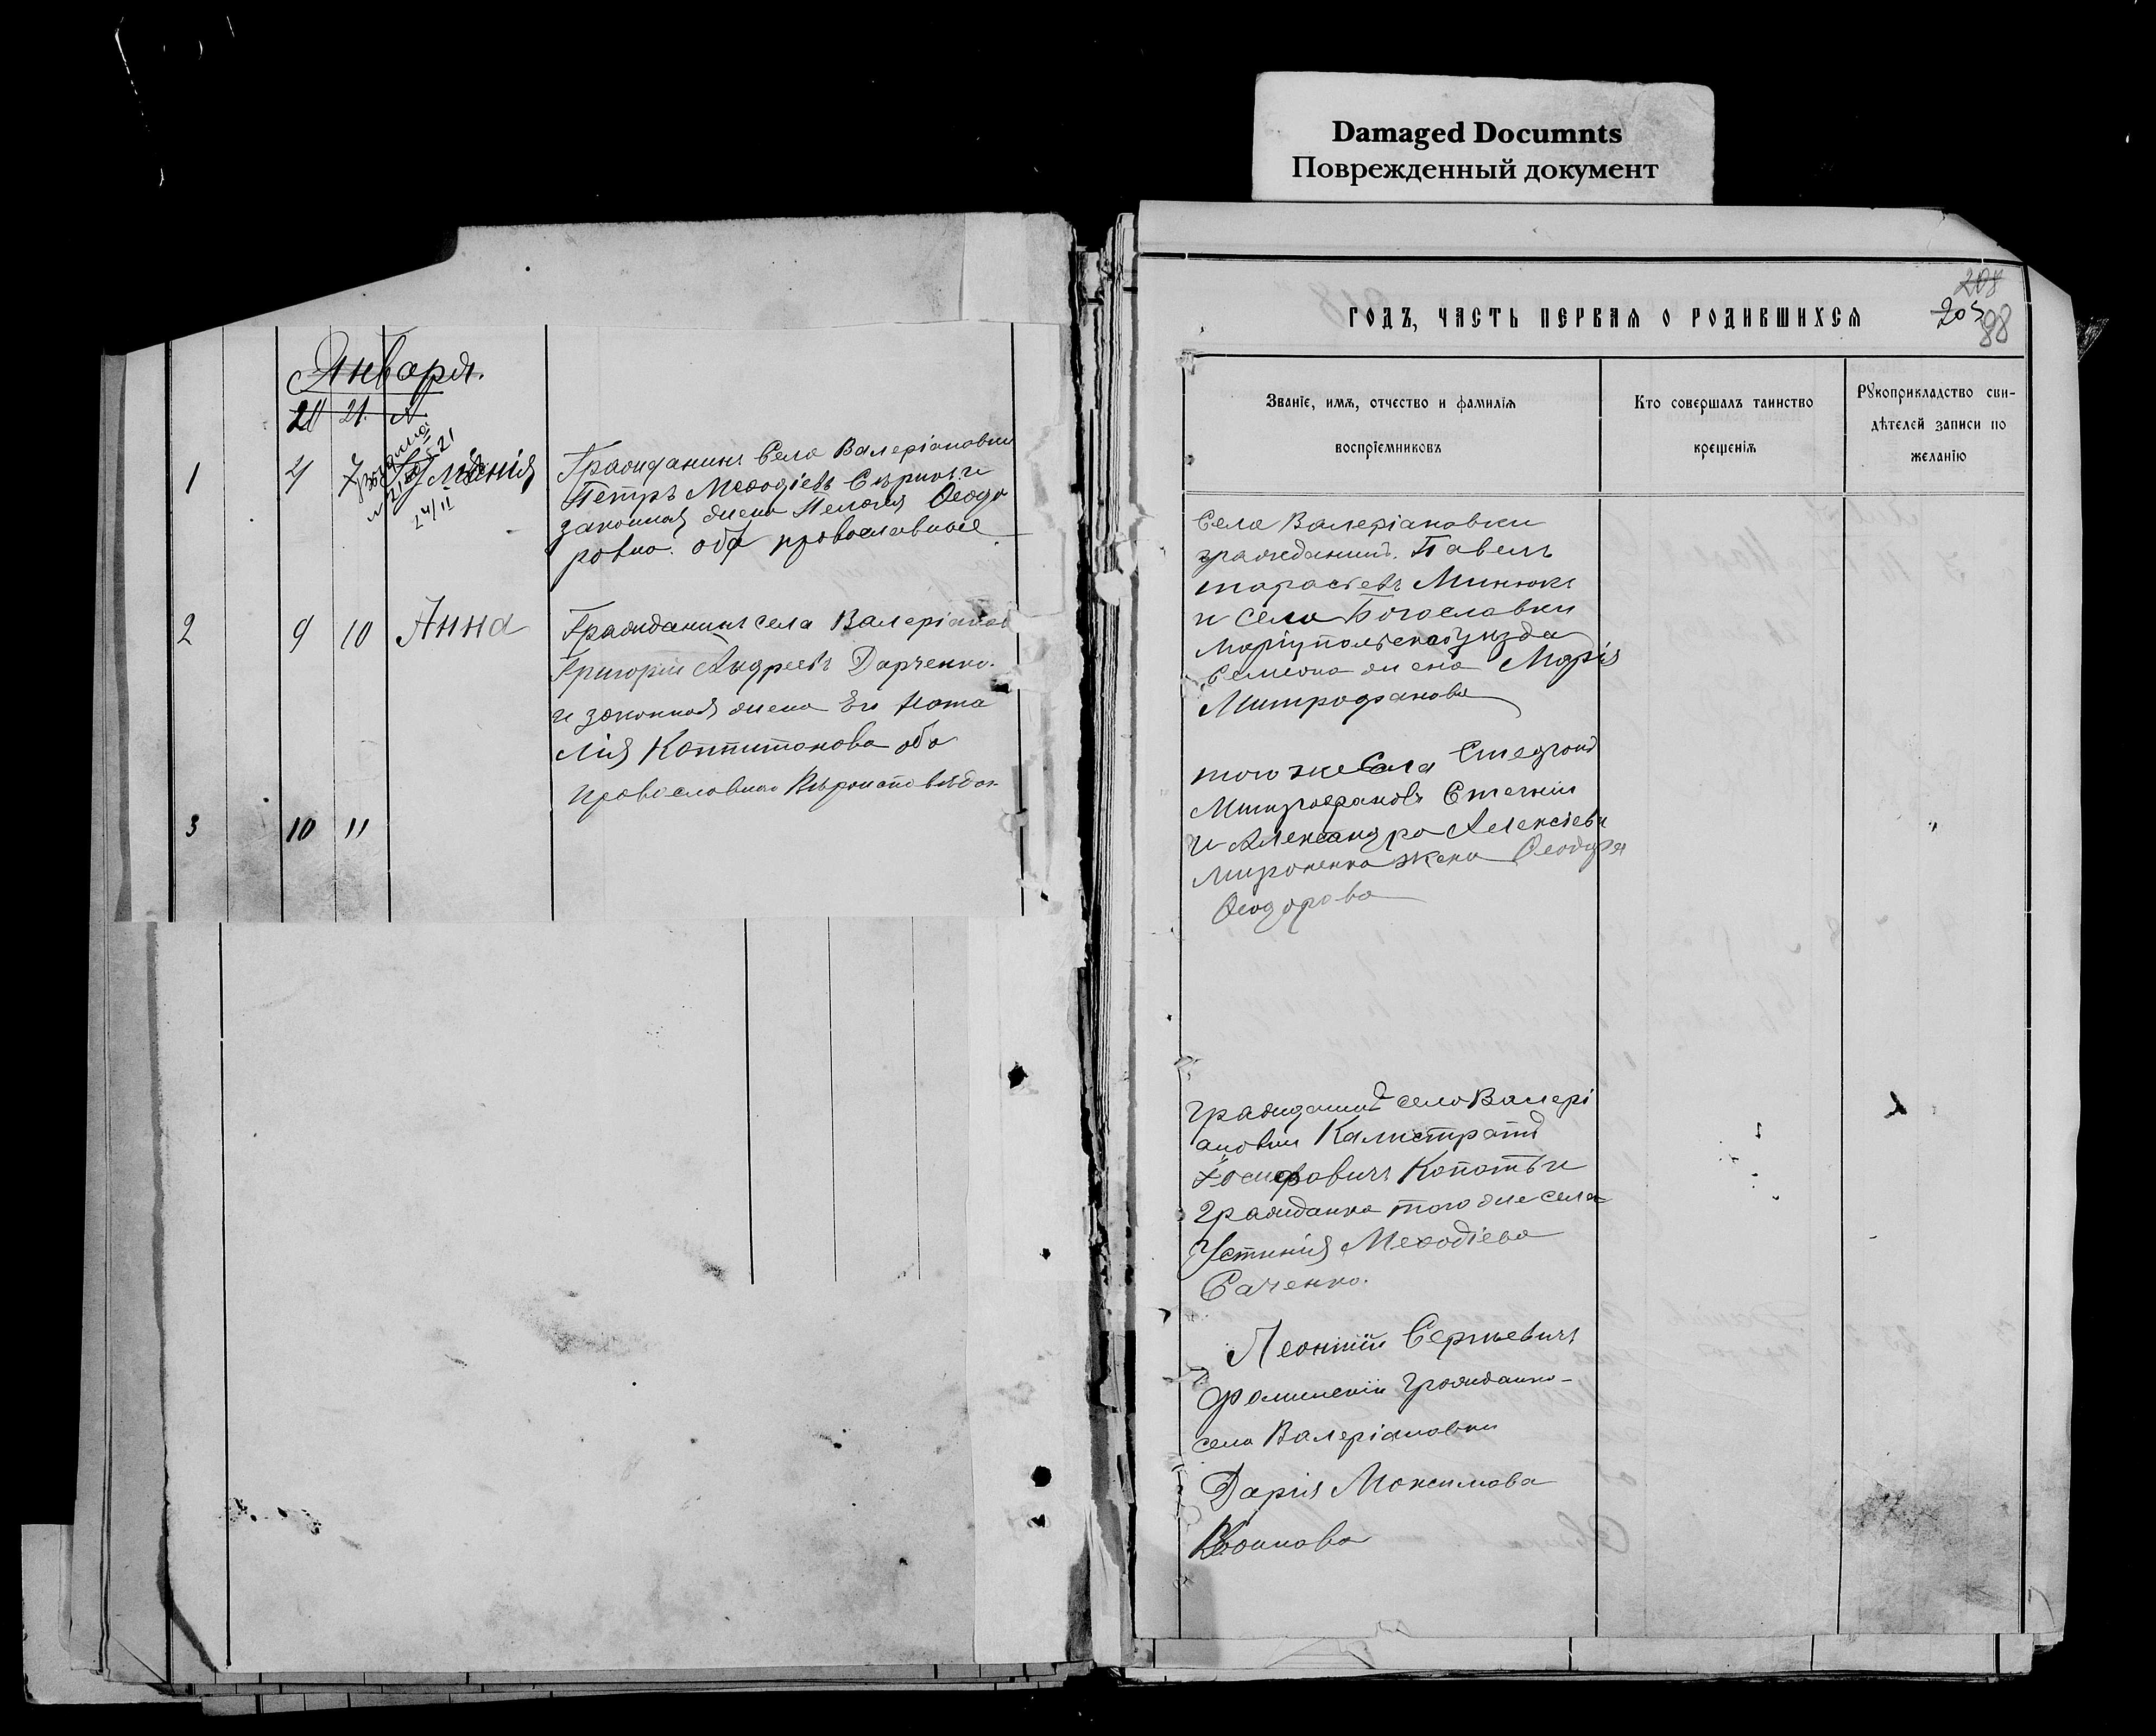 Damaged Documnts
Поврежденный документ
Января.
20 21.
1 4 7 Гражданинъ Села Валеріановки
Петръ Меѳодіевъ и
законная жена Ѳеодо
ровна. оба православные
2 9 10 Анна Гражданинъ села Валеріанов
Григорій Андреевъ Дарченко.
и законная жена Его Ната
лія Каппитонова оба
Православнаго
3 10 11
208
205
98
годъ, часть первая о родившихся
Званіе, имя, отчество и фамилія
воспріемниковъ
Кто совершалъ таинство
крещенія
Рукоприкладство сви-
дѣтелей записи по
желанію
Села Валеріановки
гражданинъ. Павелъ
тарасіевъ Минюкъ
и Села Богославки
Маріупольскаго уизда
жена Марія
Митрофанова
того же Села
Митрофановъ
и Александра Алексіевъ
Мироненка жена Ѳеодора
Ѳеодорова
Гражданинъ село Валері
ановки Калистратъ
Іосифовичъ Копоть и
Гражданка того же села
Устинія Меѳодіева
Саченко.
Леонтій Сергьевичъ
Фоминскій Гражданко-
села Валеріановки
Дарія Максимова